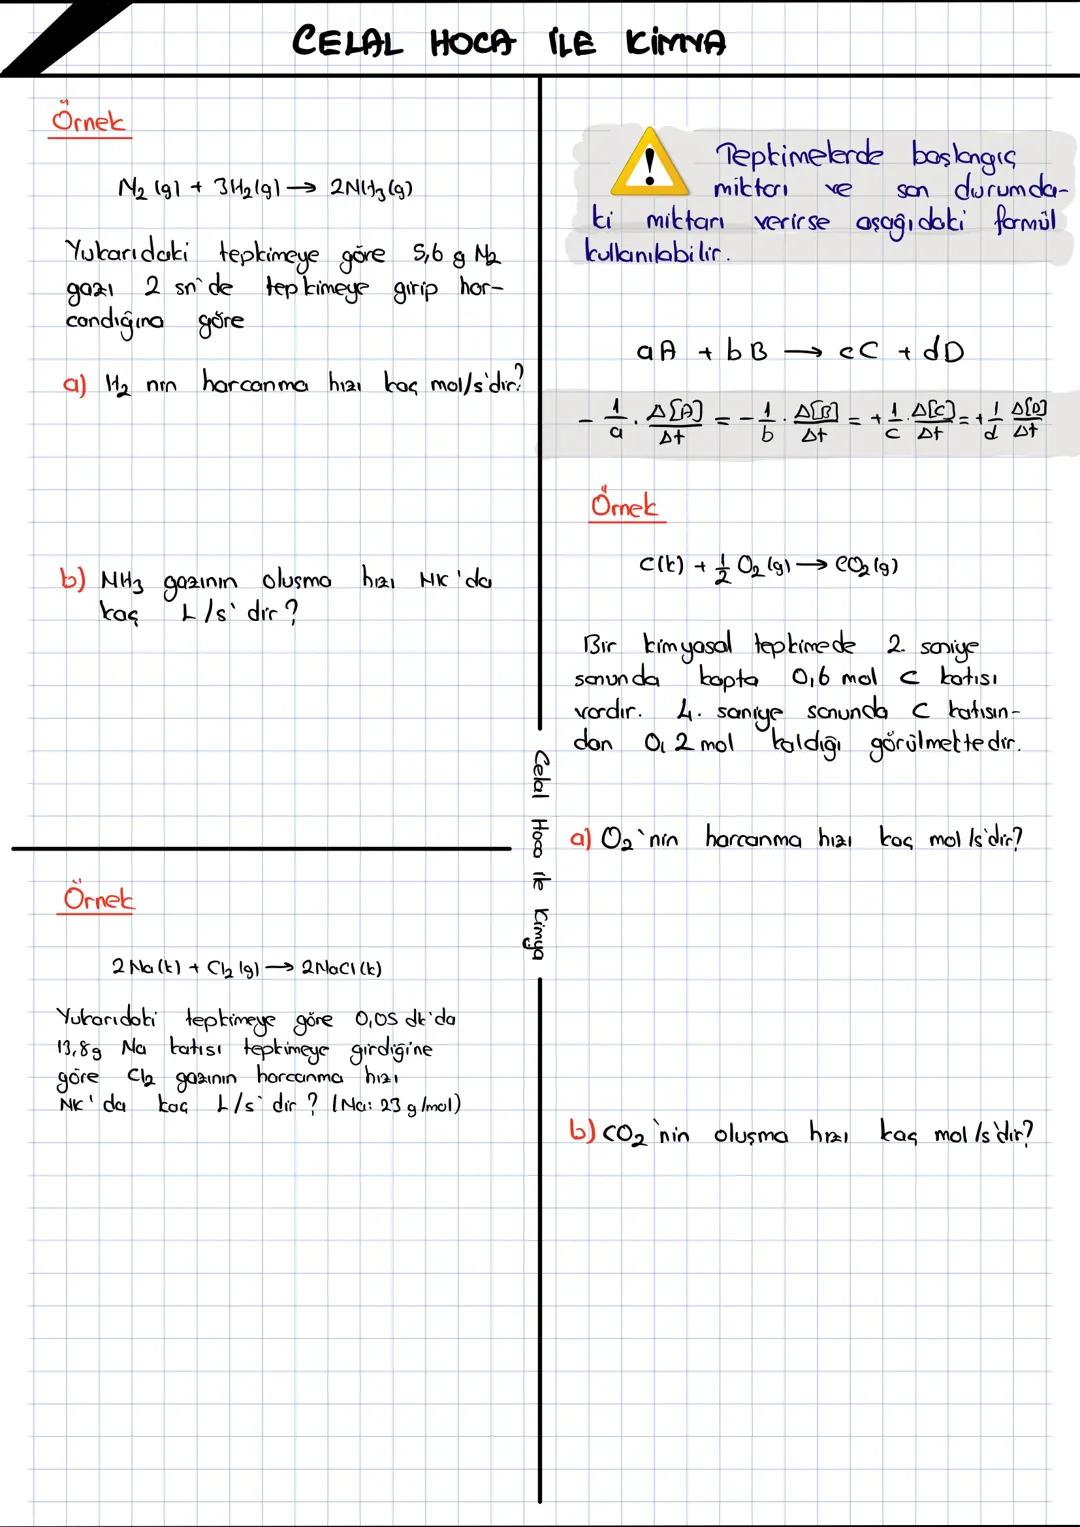 CELAL HOCA İLE KİMYA
Örnek
N₂ (g) + 3H₂(g) → 2NH₃(g)
Yukarıdaki tepkimeye göre 5,6 g N₂
gazı 2 sn'de tepkimeye girip har-
candığına göre
a) H₂ nin harcanma hızı kaç mol/s'dir?
b) NH₃ gazının oluşma hızı NK'da
kaç L/s'dir?
Örnek
2Na(k) + Cl₂(g) → 2NaCl(k)
Yukarıdaki tepkimeye göre 0,05 dk'da
13,8g Na katısı tepkimeye girdiğine
göre Cl₂ gazının harcanma hızı
NK'da kaç L/s'dir? (Na: 23 g/mol)
Celal Hoca ile Kimya
!
Tepkimelerde başlangıç
miktarı ve son durumda-
ki miktarı verirse aşağıdaki formül
kullanılabilir.
aA + bB → cC + dD
- 1/a . Δ[A]/Δt = - 1/b . Δ[B]/Δt = + 1/c . Δ[C]/Δt = + 1/d Δ[D]/Δt
Örnek
C(k) + 1/2 O₂(g) → CO₂(g)
Bir kimyasal tepkimede 2. saniye
sonunda kapta 0,6 mol C katısı
vardır. 4. saniye sonunda C katısın-
dan 0,2 mol kaldığı görülmektedir.
a) O₂'nin harcanma hızı kaç mol/s'dir?
b) CO₂'nin oluşma hızı kaç mol/s'dir?